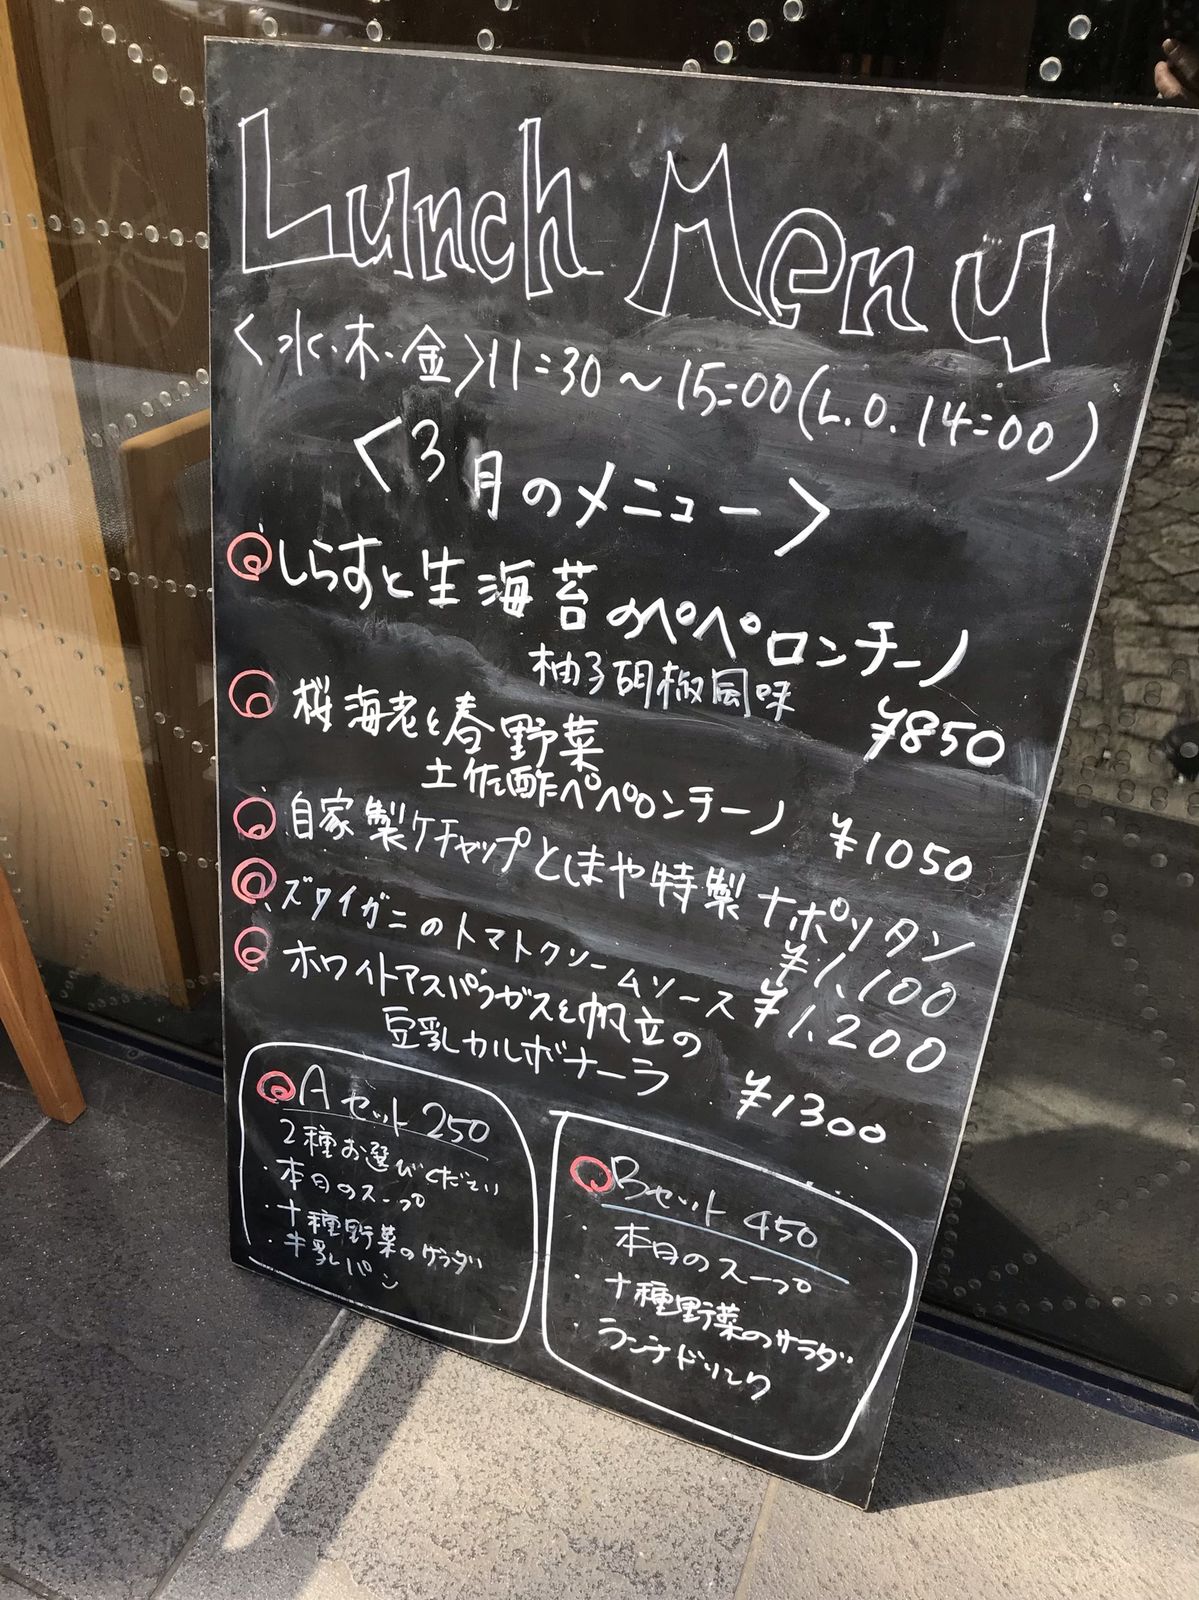 Lunch Menu
<水・木・金>11:30～15:00(L.O.14:00)
<3月のメニュー>
しらすと生海苔のペペロンチーノ
柚子胡椒風味 ¥850
桜海老と春野菜
土佐酢ペペロンチーノ ¥1050
自家製ケチャップとしまや特製ナポリタン
¥1,100
ズワイガニのトマトクリームソース ¥1,200
ホワイトアスパラガスと帆立の
豆乳カルボナーラ ¥1300
Aセット 250
2種お選びください
・本日のスープ
・十種野菜のサラダ
・牛乳パン
Bセット 450
・本日のスープ
・十種野菜のサラダ
・ランチドリンク